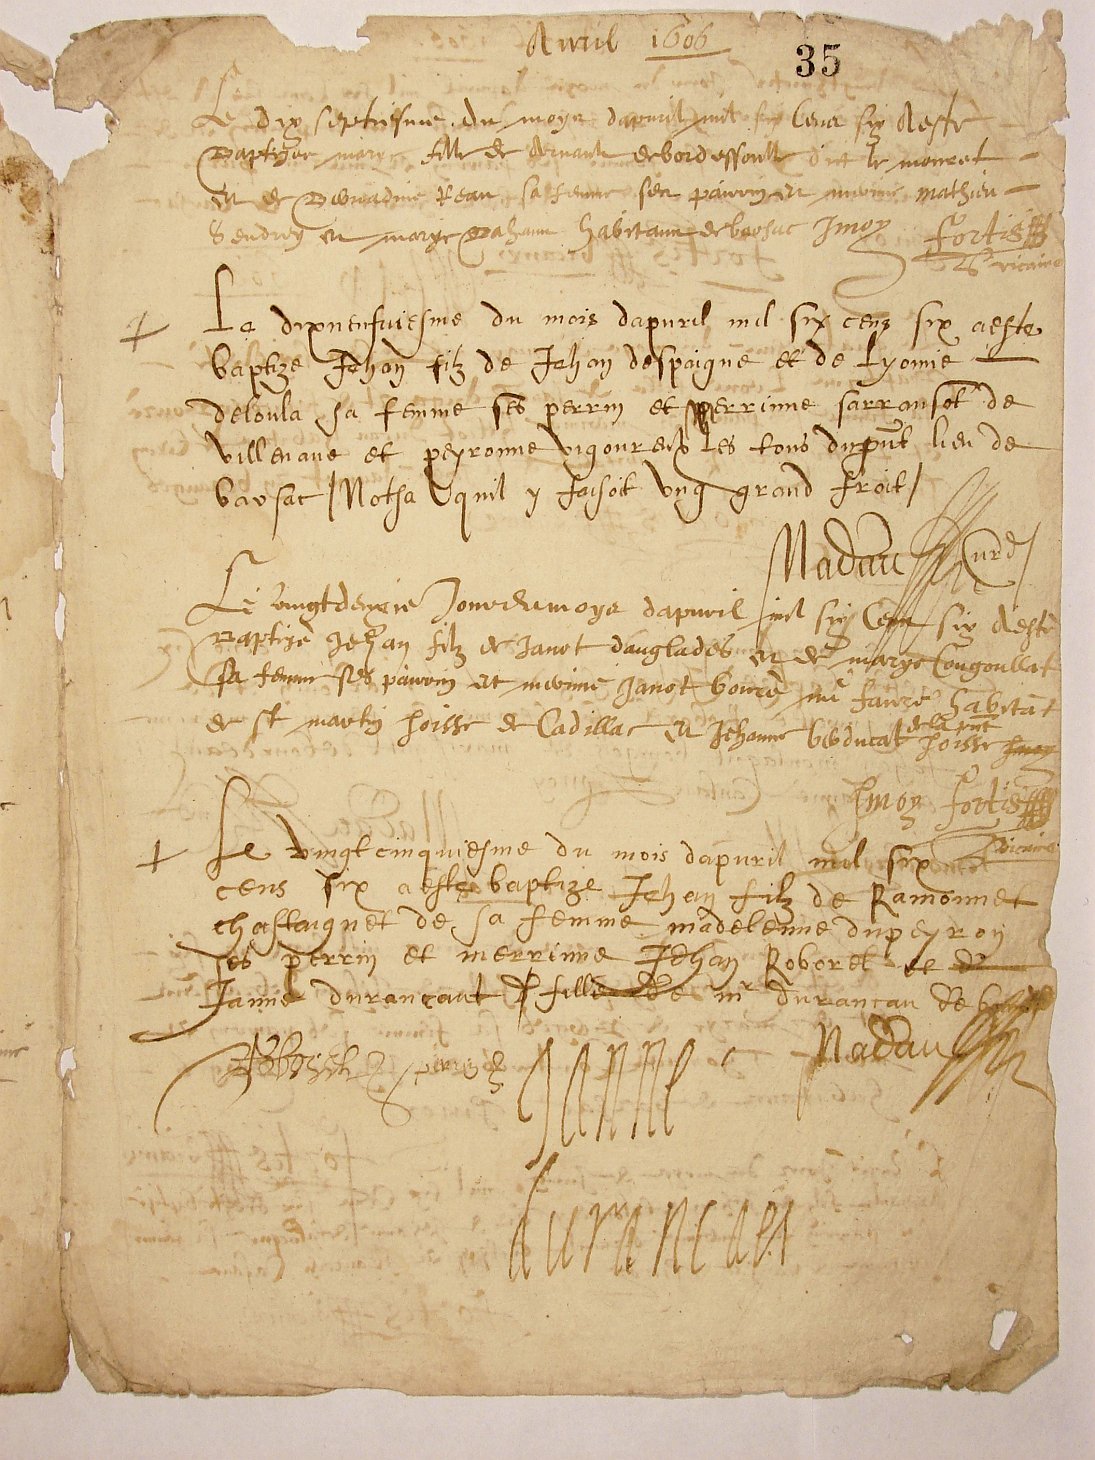 Apvril 1606
35
Le dix septiesme du moys dapvril mil six Cens six A este
Baptizee mary fille de Arnault debordessoulle dict le monret
et de Bernadine Reau sa femme ses pairin et merine mathieu
Sendrey et marye habitans de barsac Imoy Fortis
vicaire
Le dixneufviesme du mois dapvril mil six cens six a este
baptize Jehan filz de Jehan despaigne et de Lyonne
deloula sa femme ses perrin et merrinne sarransot de
villenave et peyronne vigoureux les tous du pnt lieu de
barsac / Notha quil y faisoit ung grand froit /
Nadau Curé
Le vingtdeuxie Jour du moys dapvril mil six Cens six A este
Baptizé Jehan filz de Janot dauglades et de marye Cougoullat
sa femme ses pairin et merinne Janot me faure habitat
de st martin poisse de Cadillac et Jehanne berducat de la pnt poisse
Imoy Fortis
vicaire
Le vingtcinquiesme du mois dapvril mil six
cens six a este baptize Jehan filz de Ramonnet
chastaignet de sa femme madelenne dupeyron
ses perrin et merrinne Jehan Roborel et
Janne durancaut fille de mr durancau de
Roborel perrin
Nadau
Janne
durancau